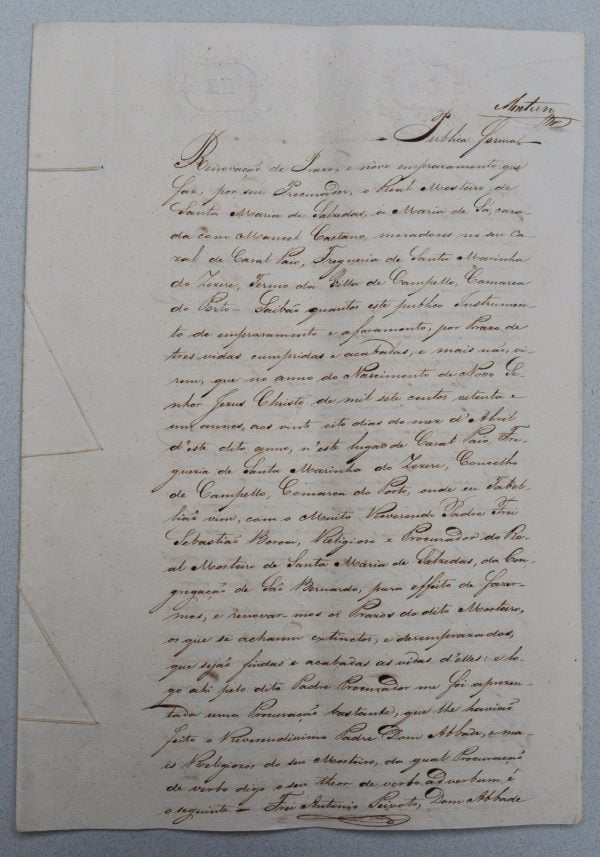 Publica forma
Renovação de Prazo, e novo emprazamento que
faz, por seu Procurador, o Real Mosteiro de
Santa Maria de Salzedas, a Maria de Sá, caza-
da com Manoel Caetano, moradores no seu ca-
zal de Cazal Paio, Freguezia de Santa Marinha
do Zezere, Termo da Villa de Campello, Comarca
do Porto - Saibão quantos este publico Instrumen-
to de emprazamento e aforamento, por Prazo de
tres vidas cumpridas e acabadas, e mais não, vi-
rem, que no anno do Nascimento de Nosso Se-
nhor Jezus Christo de mil sete centos setenta e
um annos, aos vinte oito dias do mez d'Abril
d'este dito anno, n'este lugar de Cazal Paio, Fre-
guezia de Santa Marinha do Zezere, Concelho
de Campello, Comarca do Porto, onde eu Tabel-
lião vim, com o Muito Reverendo Padre Frei
Sebastião Religiozo e Procurador do Re-
al Mosteiro de Santa Maria de Salzedas, da Con-
gregação de São Bernardo, para effeito de fazer-
mos, e renovar-mos os Prazos do dito Mosteiro,
os que se acharem extinctos, e desemprazados,
que sejão findas e acabadas as vidas d'elles: e lo-
go ahi pelo dito Padre Procurador me foi aprezen-
tada uma Procuração bastante, que lhe havião
feito o Reverendissimo Padre Dom Abbade, e ma-
is Religiozos do seu Mosteiro, da qual Procuração
de verbo digo o seu theor de verbo ad verbum é
o seguinte - Frei Antonio Peixoto, Dom Abbade